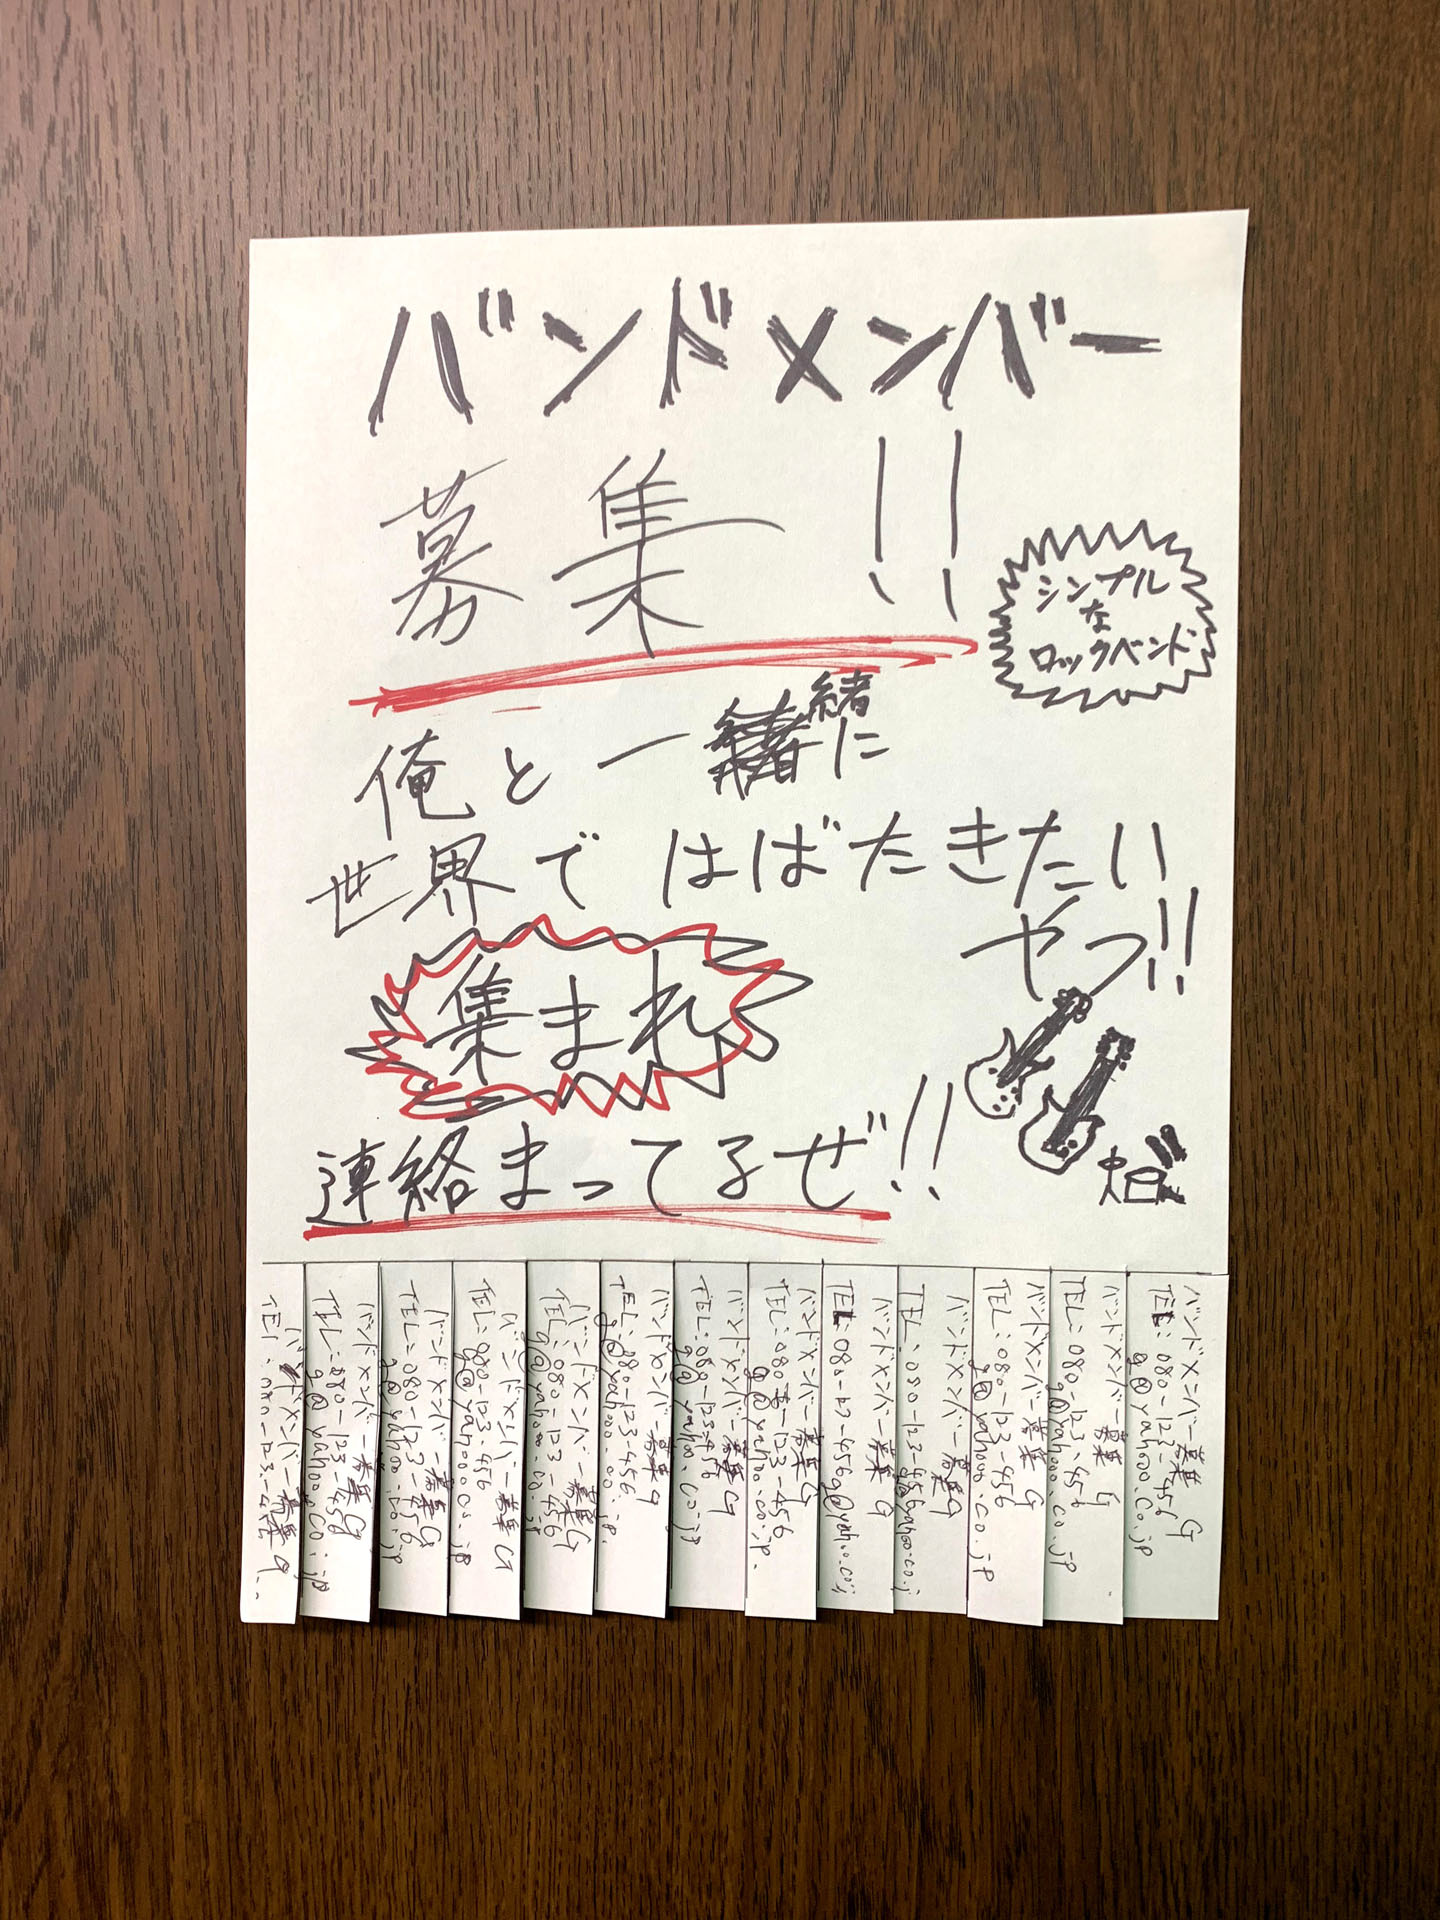 バンドメンバー
募集!!
シンプル
な
ロックバンド
俺と一緒に
世界ではばたきたい
やつ!!
集まれ
連絡まってるぜ!!
バンドメンバー募集 G
TEL:080-123-456
g@yahoo.co.jp
バンドメンバー募集 G
TEL:080-123-456
g@yahoo.co.jp
バンドメンバー募集 G
TEL:080-123-456
g@yahoo.co.jp
バンドメンバー募集G
TEL:080-123-456
yahoo.co.j
バンドメンバー募集 G
TEL:080-123-456
g@yahoo.co.j
バンドメンバー募集G
TEL:080-123-456
g@yahoo.co.jp.
バンドメンバー募集G
TEL:080-123-456
g@yahoo.co.jp
バンドメンバー募集G
TEL:080-123-456
g@yahoo.co.jp.
バンドメンバー募集G
TEL:080-123-456
g@yahoo.co.jp
バンドメンバー募集G
TEL:080-123-456
g@yahoo.co.jp
バンドメンバー募集G
TEL:080-123-456
g@yahoo.co.jp
バンドメンバー募集G
TEL:080-123-456
g@yahoo.co.jp
バンドメンバー募集G